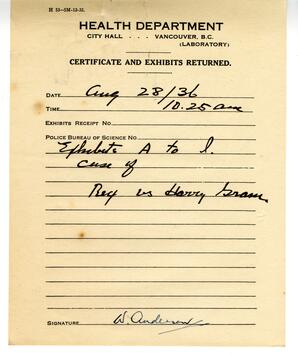 H 53—5M-12-35.
HEALTH DEPARTMENT
CITY HALL . . . VANCOUVER, B.C.
(LABORATORY)
CERTIFICATE AND EXHIBITS RETURNED.
DATE Aug 28/36
TIME 10.25 am
EXHIBITS RECEIPT NO.
POLICE BUREAU OF SCIENCE NO.
Exhibits A to I.
case of
Rex vs Harry
SIGNATURE W. Anderson